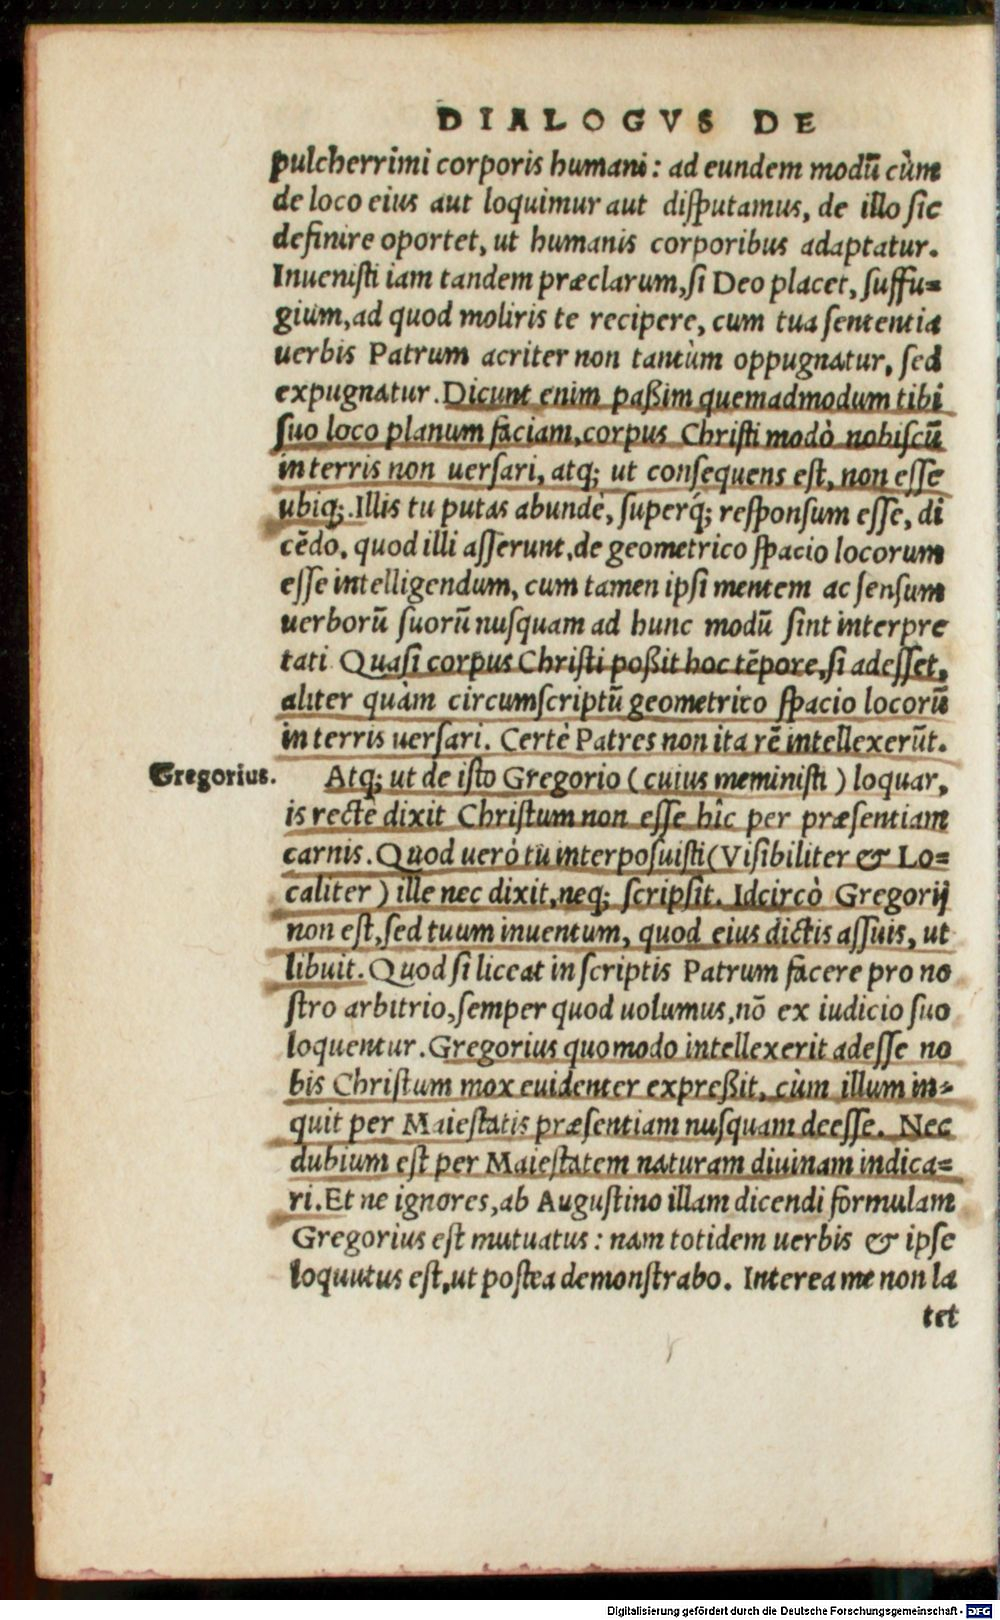 DIALOGVS DE
pulcherrimi corporis humani: ad eundem modū cùm
de loco eius aut loquimur aut diſputamus, de illo ſic
definire oportet, ut humanis corporibus adaptatur.
Inueniſti iam tandem præclarum, ſi Deo placet, ſuffu=
gium, ad quod moliris te recipere, cum tua ſententia
uerbis Patrum acriter non tantùm oppugnatur, ſed
expugnatur. Dicunt enim paßim quemadmodum tibi
ſuo loco planum faciam, corpus Chriſti modò nobiſcū
in terris non uerſari, atq; ut conſequens eſt, non eſſe
ubiq;. Illis tu putas abundè, ſuperq́; reſponſum eſſe, di
cēdo, quod illi aſſerunt, de geometrico ſpacio locorum
eſſe intelligendum, cum tamen ipſi mentem ac ſenſum
uerborū ſuorū nuſquam ad hunc modū ſint interpre
tati Quaſi corpus Chriſti poßit hoc tēpore, ſi adeſſet,
aliter quàm circumſcriptū geometrico ſpacio locorū
in terris uerſari. Certè Patres non ita rē intellexerūt.
Gregorius. Atq; ut de iſto Gregorio (cuius meminiſti) loquar,
is rectè dixit Chriſtum non eſſe hîc per præſentiam
carnis. Quod uerò tu interpoſuiſti (Viſibiliter & Lo=
caliter) ille nec dixit, neq; ſcripſit. Idcircò Gregorij
non eſt, ſed tuum inuentum, quod eius dictis aſſuis, ut
libuit. Quod ſi liceat in ſcriptis Patrum facere pro no
ſtro arbitrio, ſemper quod uolumus, nō ex iudicio ſuo
loquentur. Gregorius quomodo intellexerit adeſſe no
bis Chriſtum mox euidenter expreßit, cùm illum in=
quit per Maieſtatis præſentiam nuſquam deeſſe. Nec
dubium eſt per Maieſtatem naturam diuinam indica=
ri. Et ne ignores, ab Auguſtino illam dicendi formulam
Gregorius eſt mutuatus: nam totidem uerbis & ipſe
loquutus eſt, ut poſtea demonſtrabo. Interea me non la
tet
Digitalisierung gefördert durch die Deutsche Forschungsgemeinschaft - DFG